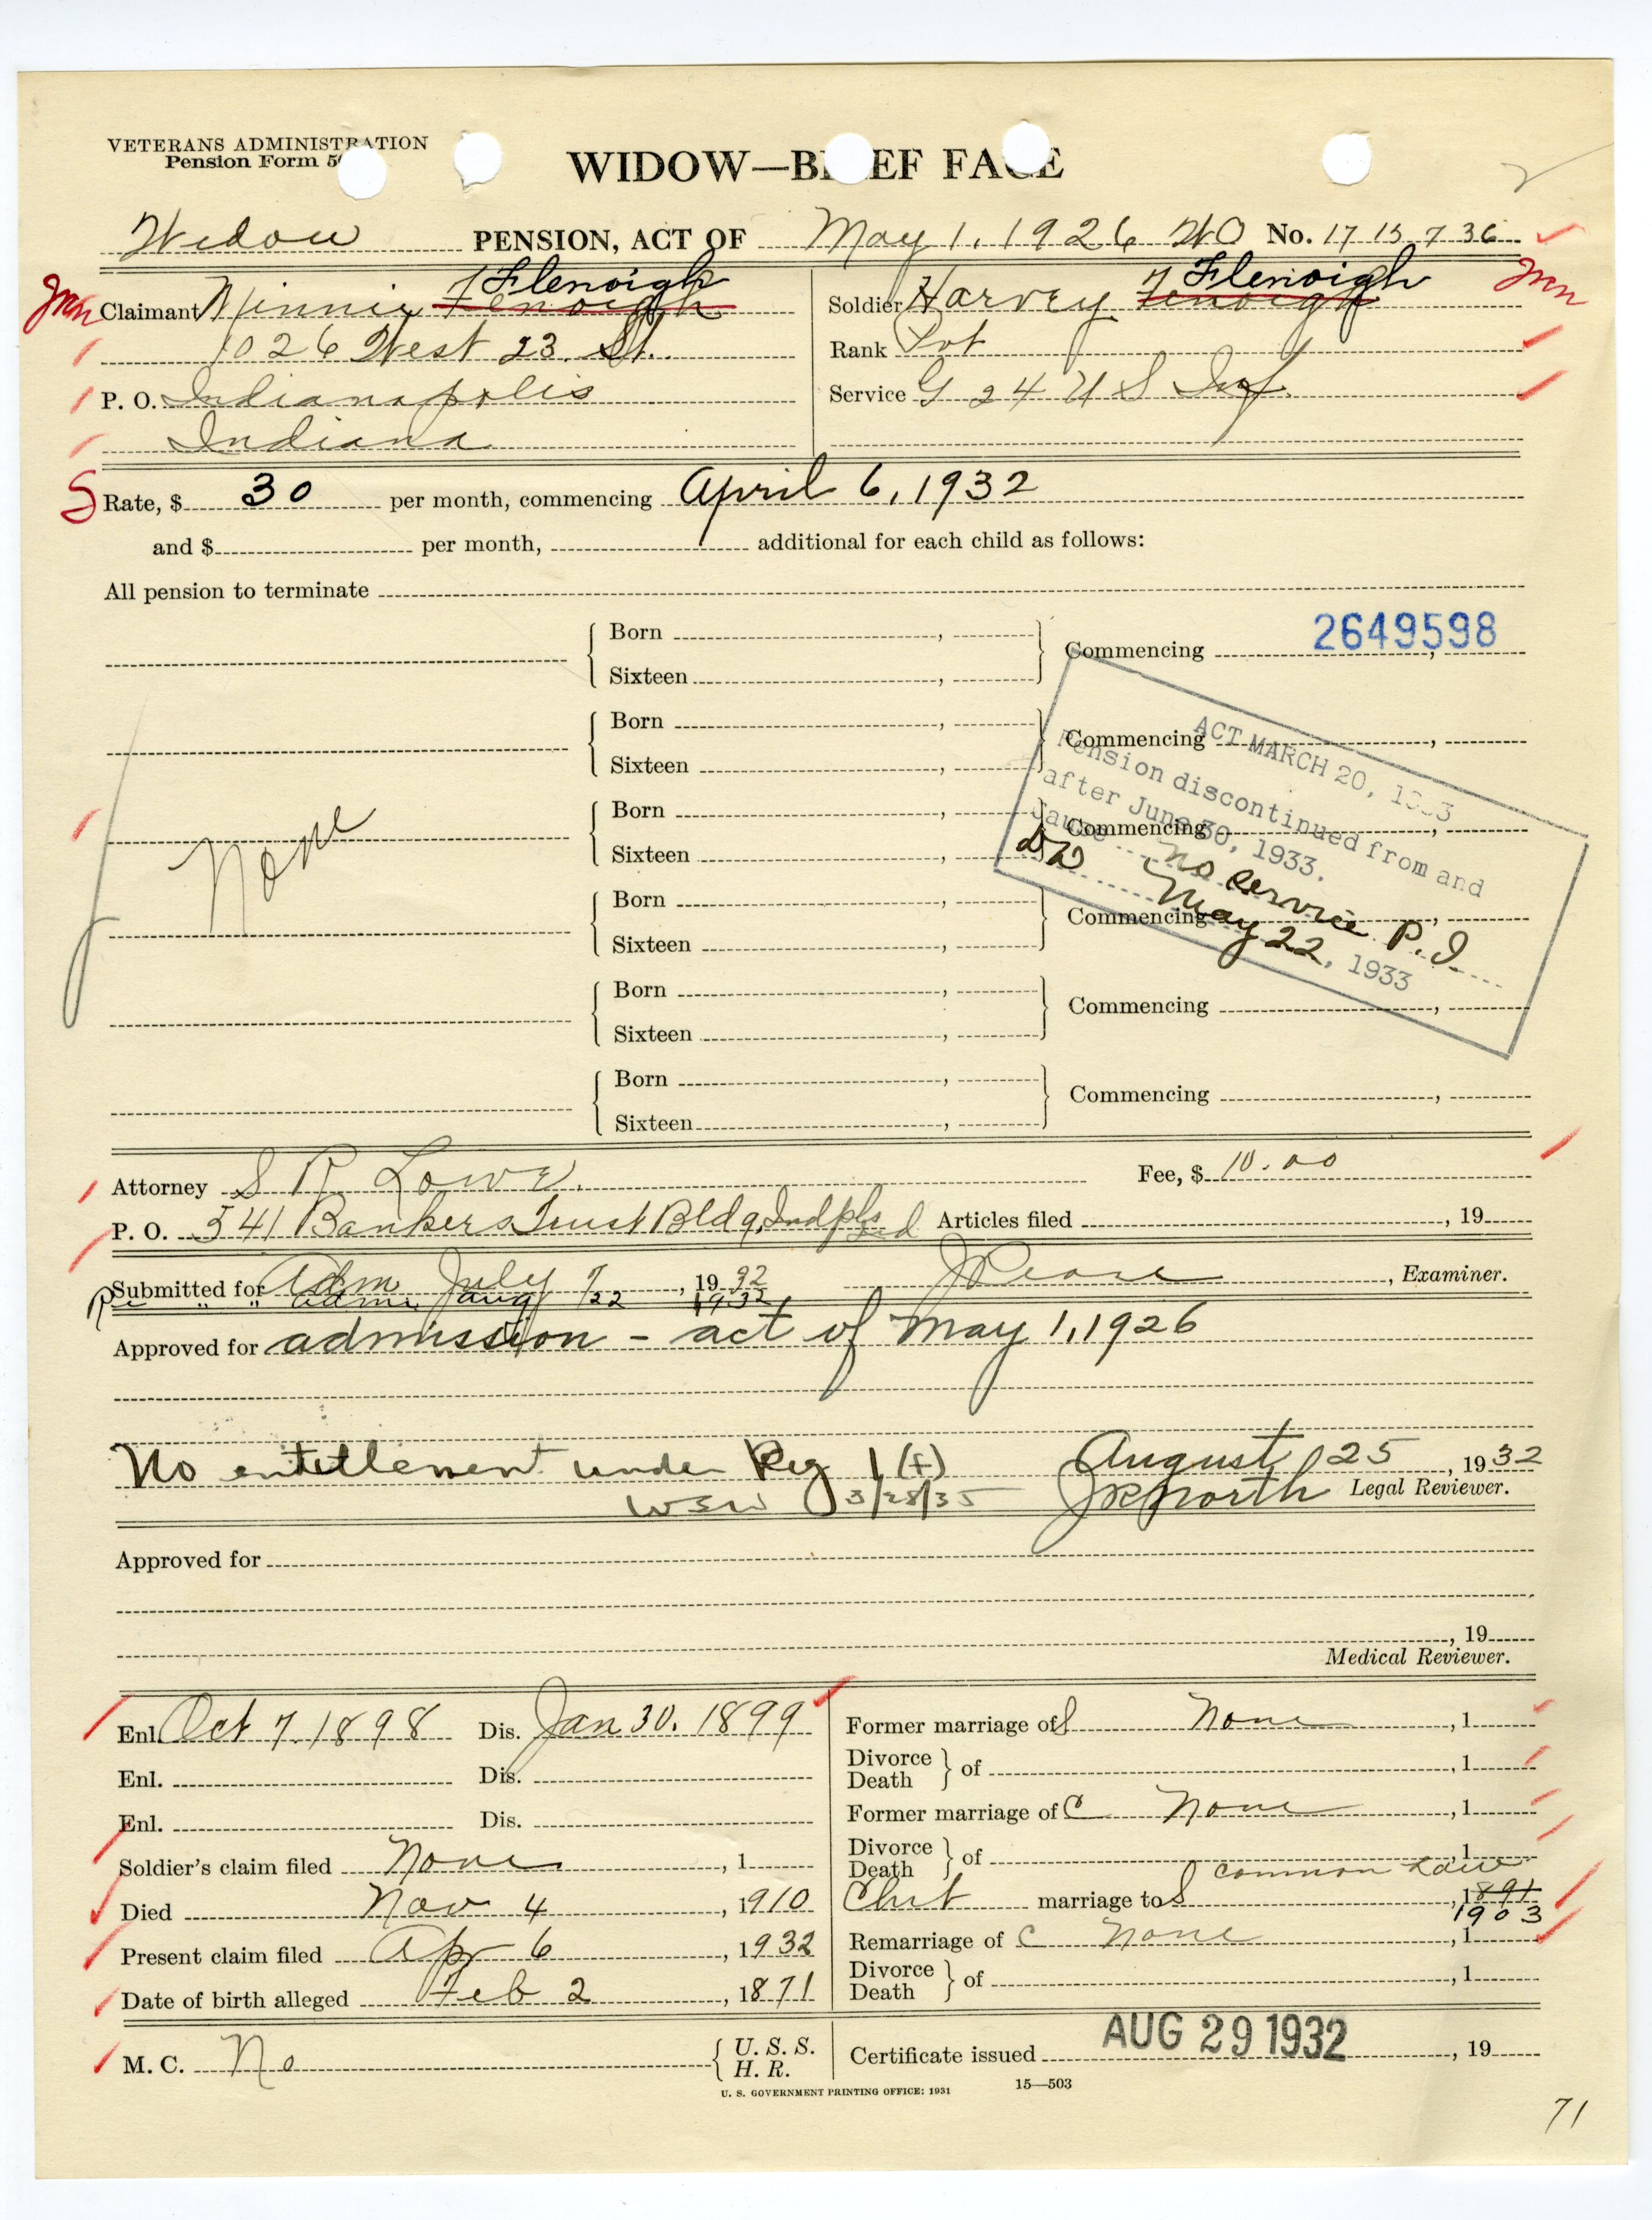 VETERANS ADMINISTRATION
Pension Form
WIDOW—BRIEF FACE
2
Widow PENSION, ACT OF May 1, 1926 WO No. 1715736
Claimant Minnie Fenoigh Flenoigh
1026 West 23. St.
P. O. Indianapolis
Indiana
Soldier Harvey Fenoigh Flenoigh
Rank Pvt
Service G 24 U S Inf.
Rate, $ 30 per month, commencing April 6, 1932
and $ per month, additional for each child as follows:
All pension to terminate
2649598
Born , Commencing ,
Sixteen ,
Born , Commencing ,
Sixteen ,
Born , Commencing ,
Sixteen ,
None
Born , Commencing ,
Sixteen ,
Born , Commencing ,
Sixteen ,
Born , Commencing ,
Sixteen ,
ACT MARCH 20, 1933
Pension discontinued from and
after June 30, 1933.
Cause No service P.I
May 22, 1933
Attorney S R Lowe. Fee, $ 10.00
P. O. 541 Bankers Trust Bldg, Indpls Ind Articles filed , 19
Submitted for Adm July 7, 1932 J Pease, Examiner.
Re " " adm. Aug 22 1932
Approved for admission - act of May 1, 1926
No entitlement under Reg 1 (f)
WSW 3/28/35
August 25, 1932
JR North Legal Reviewer.
Approved for
, 19
Medical Reviewer.
Enl. Oct 7. 1898 Dis. Jan 30. 1899
Enl. Dis.
Enl. Dis.
Soldier's claim filed None , 1
Died Nov 4 , 1910
Present claim filed Apr 6 , 1932
Date of birth alleged Feb 2 , 1871
M. C. No { U. S. S.
H. R.
Former marriage of S None , 1
Divorce
Death } of , 1
Former marriage of C None , 1
Divorce
Death } of , 1
common law
Clmt marriage to S , 1891
1903
Remarriage of C None , 1
Divorce
Death } of , 1
Certificate issued AUG 29 1932 , 19
U. S. GOVERNMENT PRINTING OFFICE: 1931
15—503
71